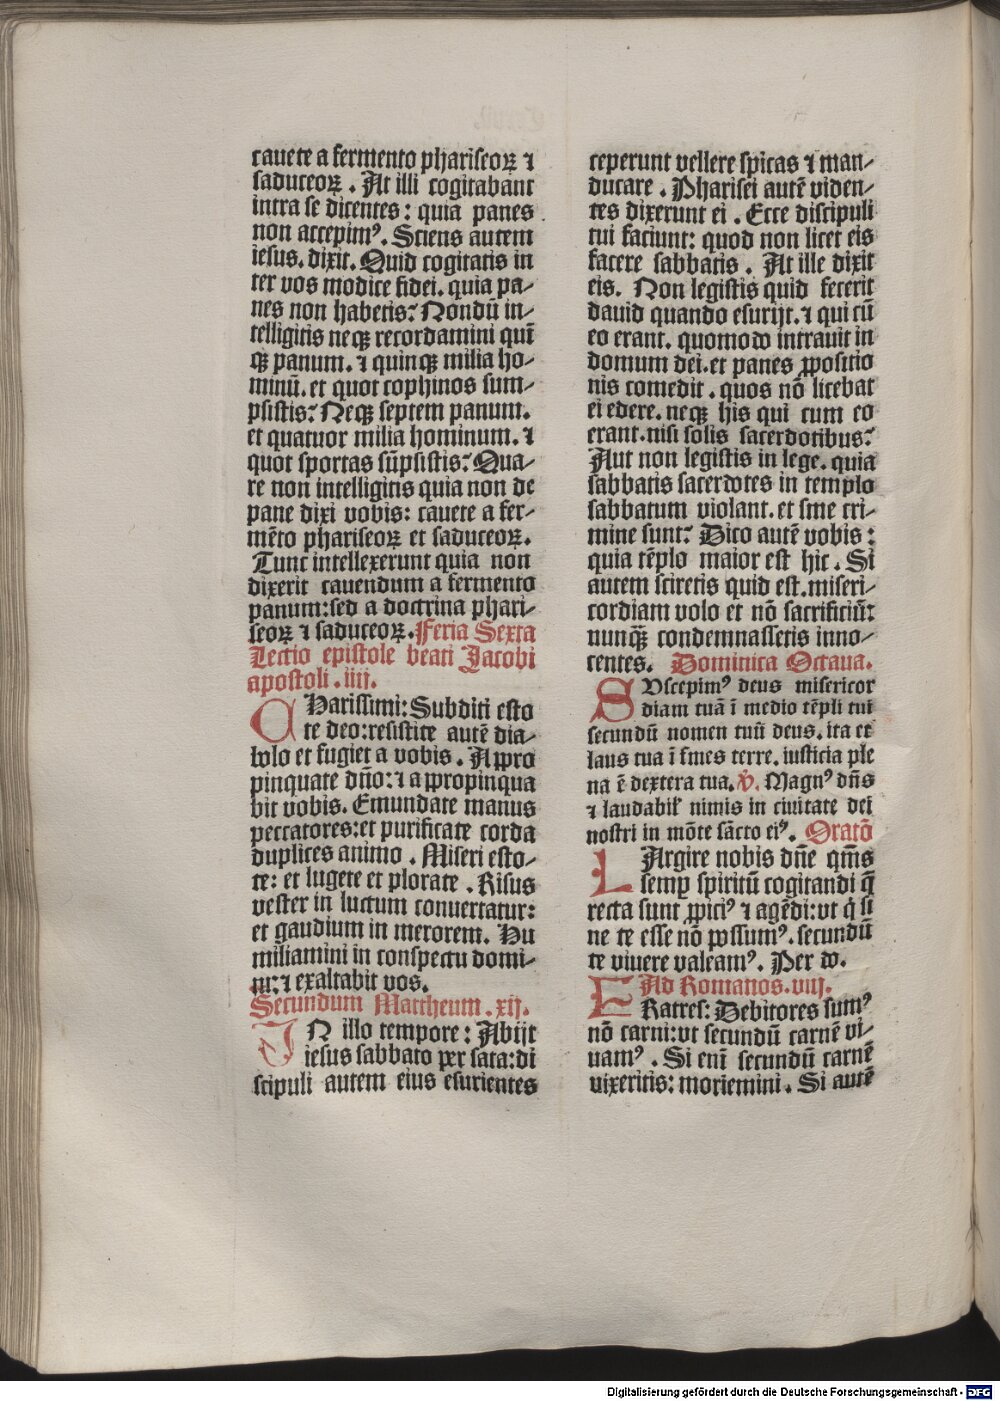 cauete a fermento phariseoꝝ ⁊
saduceoꝝ . At illi cogitabant
intra se dicentes : quia panes
non accepimꝰ . Sciens autem
iesus . dixit . Quid cogitatis in
ter vos modice fidei . quia pa⸗
nes non habetis? Nondū in⸗
telligitis neqꝫ recordamini quī
qꝫ panum . ⁊ quinqꝫ milia ho⸗
minū . et quot cophinos sum⸗
psistis? Neqꝫ septem panum .
et quatuor milia hominum . ⁊
quot sportas sūpsistis? Qua⸗
re non intelligitis quia non de
pane dixi vobis : cauete a fer⸗
mēto phariseoꝝ et saduceoꝝ .
Tunc intellexerunt quia non
dixerit cauendum a fermento
panum : sed a doctrina phari⸗
seoꝝ ⁊ saduceoꝝ . Feria Sexta
Lectio epistole beati Jacobi
apostoli . iiij .
CHarissimi : Subditi esto
te deo : resistite autē dia⸗
bolo et fugiet a vobis . Appro
pinquate dño : ⁊ appropinqua
bit vobis . Emundate manus
peccatores : et purificate corda
duplices animo . Miseri esto⸗
te : et lugete et plorate . Risus
vester in luctum conuertatur :
et gaudium in merorem . Hu
miliamini in conspectu domi⸗
ni : ⁊ exaltabit vos .
Secundum Mattheum . xij .
IN illo tempore : Abijt
iesus sabbato per sata : di
scipuli autem eius esurientes
ceperunt vellere spicas ⁊ man⸗
ducare . Pharisei autē viden⸗
tes dixerunt ei . Ecce discipuli
tui faciunt : quod non licet eis
facere sabbatis . At ille dixit
eis . Non legistis quid fecerit
dauid quando esurijt . ⁊ qui cū
eo erant . quomodo intrauit in
domum dei . et panes ꝓpositio
nis comedit . quos nō licebat
ei edere . neqꝫ his qui cum eo
erant . nisi solis sacerdotibus?
Aut non legistis in lege . quia
sabbatis sacerdotes in templo
sabbatum violant . et sine cri⸗
mine sunt? Dico autē vobis :
quia tēplo maior est hic . Si
autem sciretis quid est . miseri⸗
cordiam volo et nō sacrificiū :
nunqꝫ̄ condemnassetis inno⸗
centes . Dominica Octaua .
SUscepimꝰ deus misericor
diam tuā ī medio tēpli tui
secundū nomen tuū deus . ita et
laus tua ī fines terre . iusticia ple
na ē dextera tua . ℣. Magnꝰ dñs
⁊ laudabil' nimis in ciuitate dei
nostri in mōte sācto eiꝰ . Oratō
LArgire nobis dñe qm̄s
semꝑ spiritū cogitandi q̄
recta sunt ꝓpiciꝰ ⁊ agēdi : vt q̇ si
ne te esse nō possumꝰ . secundū
te viuere valeamꝰ . Per do .
Ad Romanos . viij .
FRatres : Debitores sumꝰ
nō carni : vt secundū carnē vi⸗
uamꝰ . Si enī secundū carnē
vixeritis : moriemini . Si autē
Digitalisierung gefördert durch die Deutsche Forschungsgemeinschaft - DFG